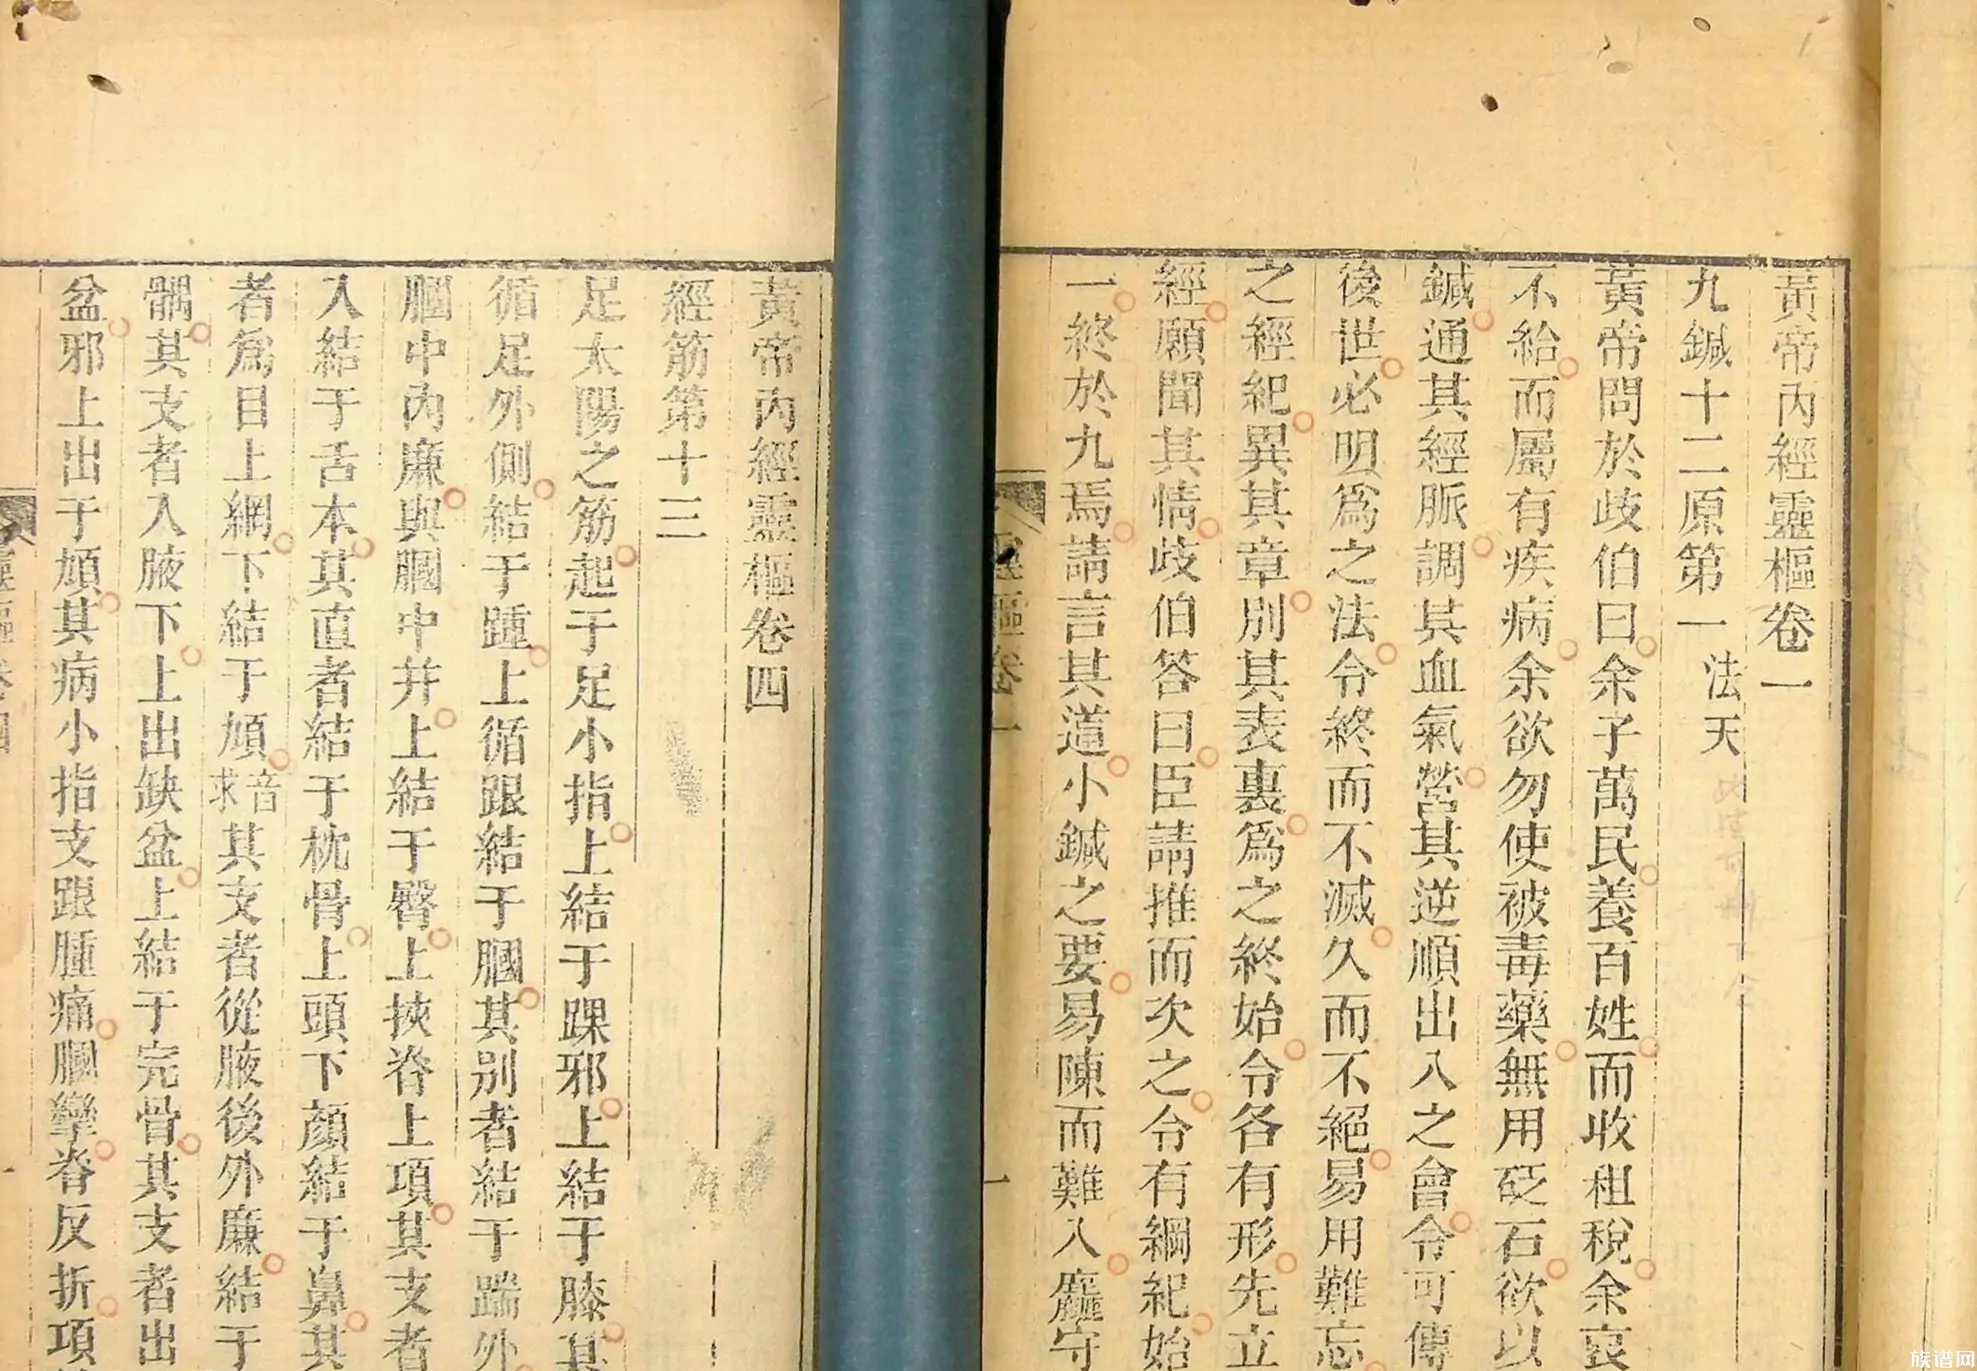 黃帝內經靈樞卷一
九鍼十二原第一 法天
黃帝問於歧伯曰余子萬民養百姓而收租稅余哀
不給而屬有疾病余欲勿使被毒藥無用砭石欲以
鍼通其經脈調其血氣營其逆順出入之會令可傳
後世必明爲之法令終而不滅久而不絕易用難忘
之經紀異其章別其表裏爲之終始令各有形先立
經願聞其情歧伯答曰臣請推而次之令有綱紀始
一終於九焉請言其道小鍼之要易陳而難入麤守
靈樞卷一
一
黃帝內經靈樞卷四
經筋第十三
足太陽之筋起于足小指上結于踝邪上結于膝其
循足外側結于踵上循跟結于膕其別者結于踹外
膕中內廉與膕中并上結于臀上挾脊上項其支者
入結于舌本其直者結于枕骨上頭下顏結于鼻其
者爲目上網下結于頄音求其支者從腋後外廉結于
髃其支者入腋下上出缺盆上結于完骨其支者出
盆邪上出于頄其病小指支跟腫痛膕攣脊反折項
靈樞卷四
族谱网